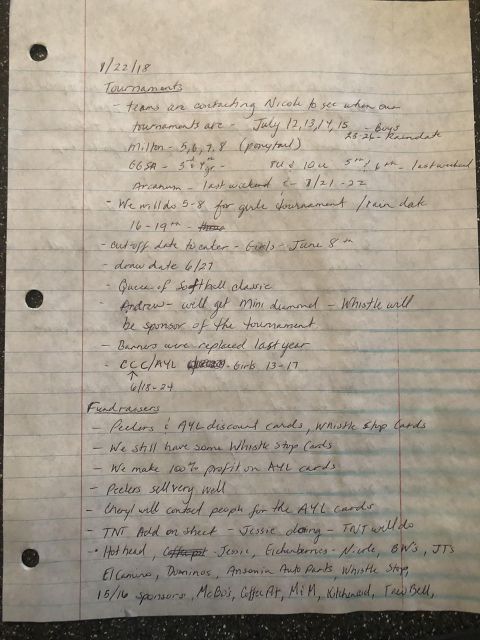 1/22/18
Tournaments
- teams are contacting Nicole to see when our
tournaments are - July 12,13,14,15 - Boys
23-26 - Raindate
Milton - 5,6,7,8 (ponytail)
GGSA - 3rd & 4th gr. - 8U & 10U 5th & 6th - last weekend
Arcanum - last weekend - 7/21-22
- We will do 5-8 for girls tournament / rain date
16-19th -
- cut-off date to enter - Girls - June 8th
- draw date 6/27
- Queen of Softball classic
- Andrew - will get Mini diamond - Whistle will
be sponsor of the tournament
- Banners were replaced last year
- CCC/AYL - Girls 13-17
↑
6/18-24
Fundraisers
- Peelers & AYL discount cards, Whistle Stop Cards
- We still have some Whistle Stop Cards
- We make 100% profit on AYL cards
- Peelers sell very well
- Cheryl will contact people for the AYL cards
- TNT Add on sheet - Jessie doing - TNT will do
- Hothead, - Jessie, Eichenberries - Nicole, BW's, JTS
El Camino, Dominos, Ansonia Auto Parts, Whistle Stop,
15/16 sponsors, McBo's, Coffee Pot, M&M, Kitchenaid, Taco Bell,